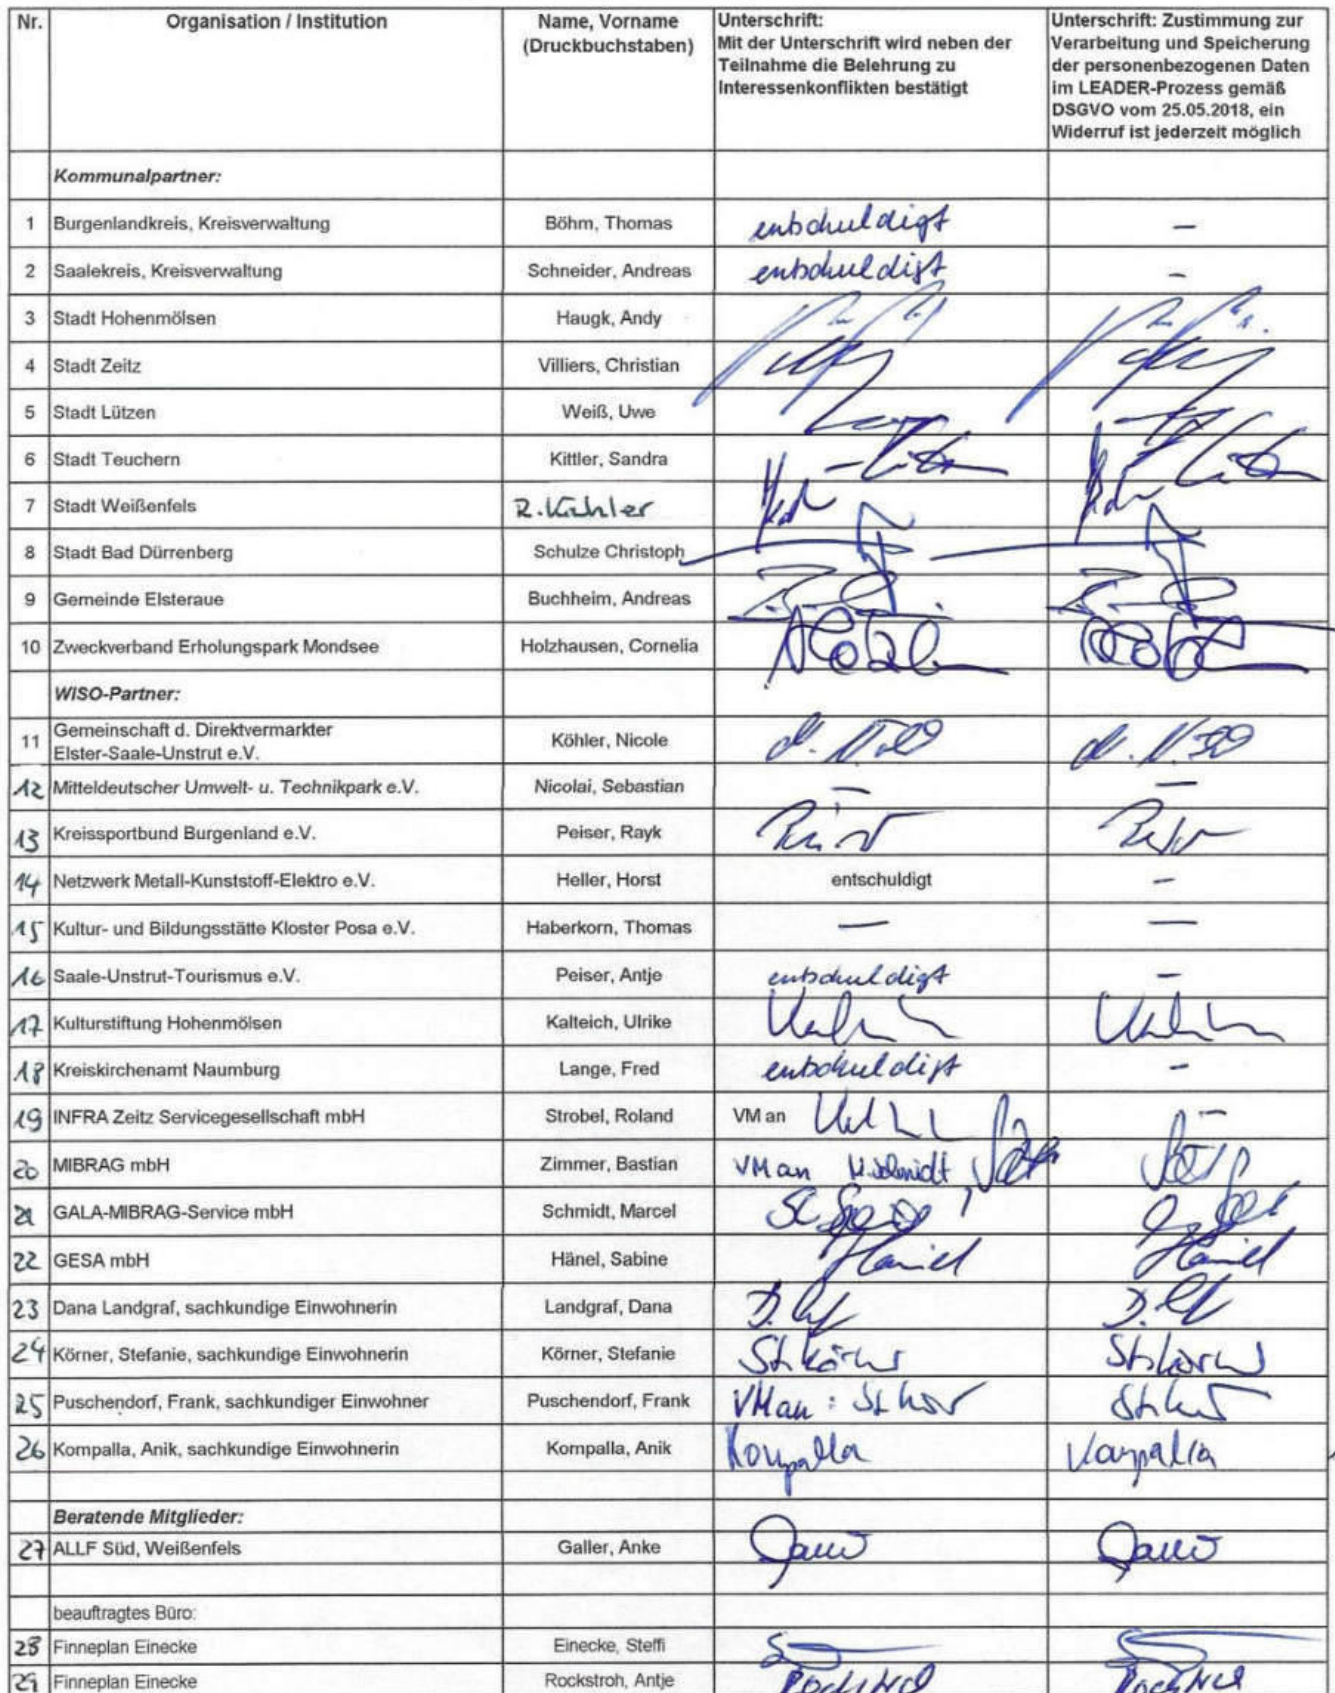 Nr. Organisation / Institution Name, Vorname Unterschrift: Unterschrift: Zustimmung zur
(Druckbuchstaben) Mit der Unterschrift wird neben der Verarbeitung und Speicherung
Teilnahme die Belehrung zu der personenbezogenen Daten
Interessenkonflikten bestätigt im LEADER-Prozess gemäß
DSGVO vom 25.05.2018, ein
Widerruf ist jederzeit möglich
Kommunalpartner:
1 Burgenlandkreis, Kreisverwaltung Böhm, Thomas entschuldigt –
2 Saalekreis, Kreisverwaltung Schneider, Andreas entschuldigt –
3 Stadt Hohenmölsen Haugk, Andy
4 Stadt Zeitz Villiers, Christian
5 Stadt Lützen Weiß, Uwe
6 Stadt Teuchern Kittler, Sandra
7 Stadt Weißenfels R.
8 Stadt Bad Dürrenberg Schulze Christoph
9 Gemeinde Elsteraue Buchheim, Andreas
10 Zweckverband Erholungspark Mondsee Holzhausen, Cornelia
WISO-Partner:
11 Gemeinschaft d. Direktvermarkter Köhler, Nicole
Elster-Saale-Unstrut e.V.
12 Mitteldeutscher Umwelt- u. Technikpark e.V. Nicolai, Sebastian – –
13 Kreissportbund Burgenland e.V. Peiser, Rayk
14 Netzwerk Metall-Kunststoff-Elektro e.V. Heller, Horst entschuldigt –
15 Kultur- und Bildungsstätte Kloster Posa e.V. Haberkorn, Thomas – –
16 Saale-Unstrut-Tourismus e.V. Peiser, Antje entschuldigt –
17 Kulturstiftung Hohenmölsen Kalteich, Ulrike
18 Kreiskirchenamt Naumburg Lange, Fred entschuldigt –
19 INFRA Zeitz Servicegesellschaft mbH Strobel, Roland VM an –
20 MIBRAG mbH Zimmer, Bastian VM an M. Schmidt
21 GALA-MIBRAG-Service mbH Schmidt, Marcel
22 GESA mbH Hänel, Sabine Hänel Hänel
23 Dana Landgraf, sachkundige Einwohnerin Landgraf, Dana
24 Körner, Stefanie, sachkundige Einwohnerin Körner, Stefanie St. Körner St. Körner
25 Puschendorf, Frank, sachkundiger Einwohner Puschendorf, Frank VM an:
26 Kompalla, Anik, sachkundige Einwohnerin Kompalla, Anik Kompalla Kompalla
Beratende Mitglieder:
27 ALLF Süd, Weißenfels Galler, Anke
beauftragtes Büro:
28 Finneplan Einecke Einecke, Steffi
29 Finneplan Einecke Rockstroh, Antje